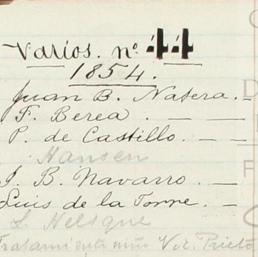 Varios. nº 44
1854.
Juan B. Natera. —
F. Berea. — —
P. de Castillo. — —
Hansen
J. B. Navarro. — —
Luis de la Torre. —
L
Tratamiento niño Vic. Prieto
C
D
F
C